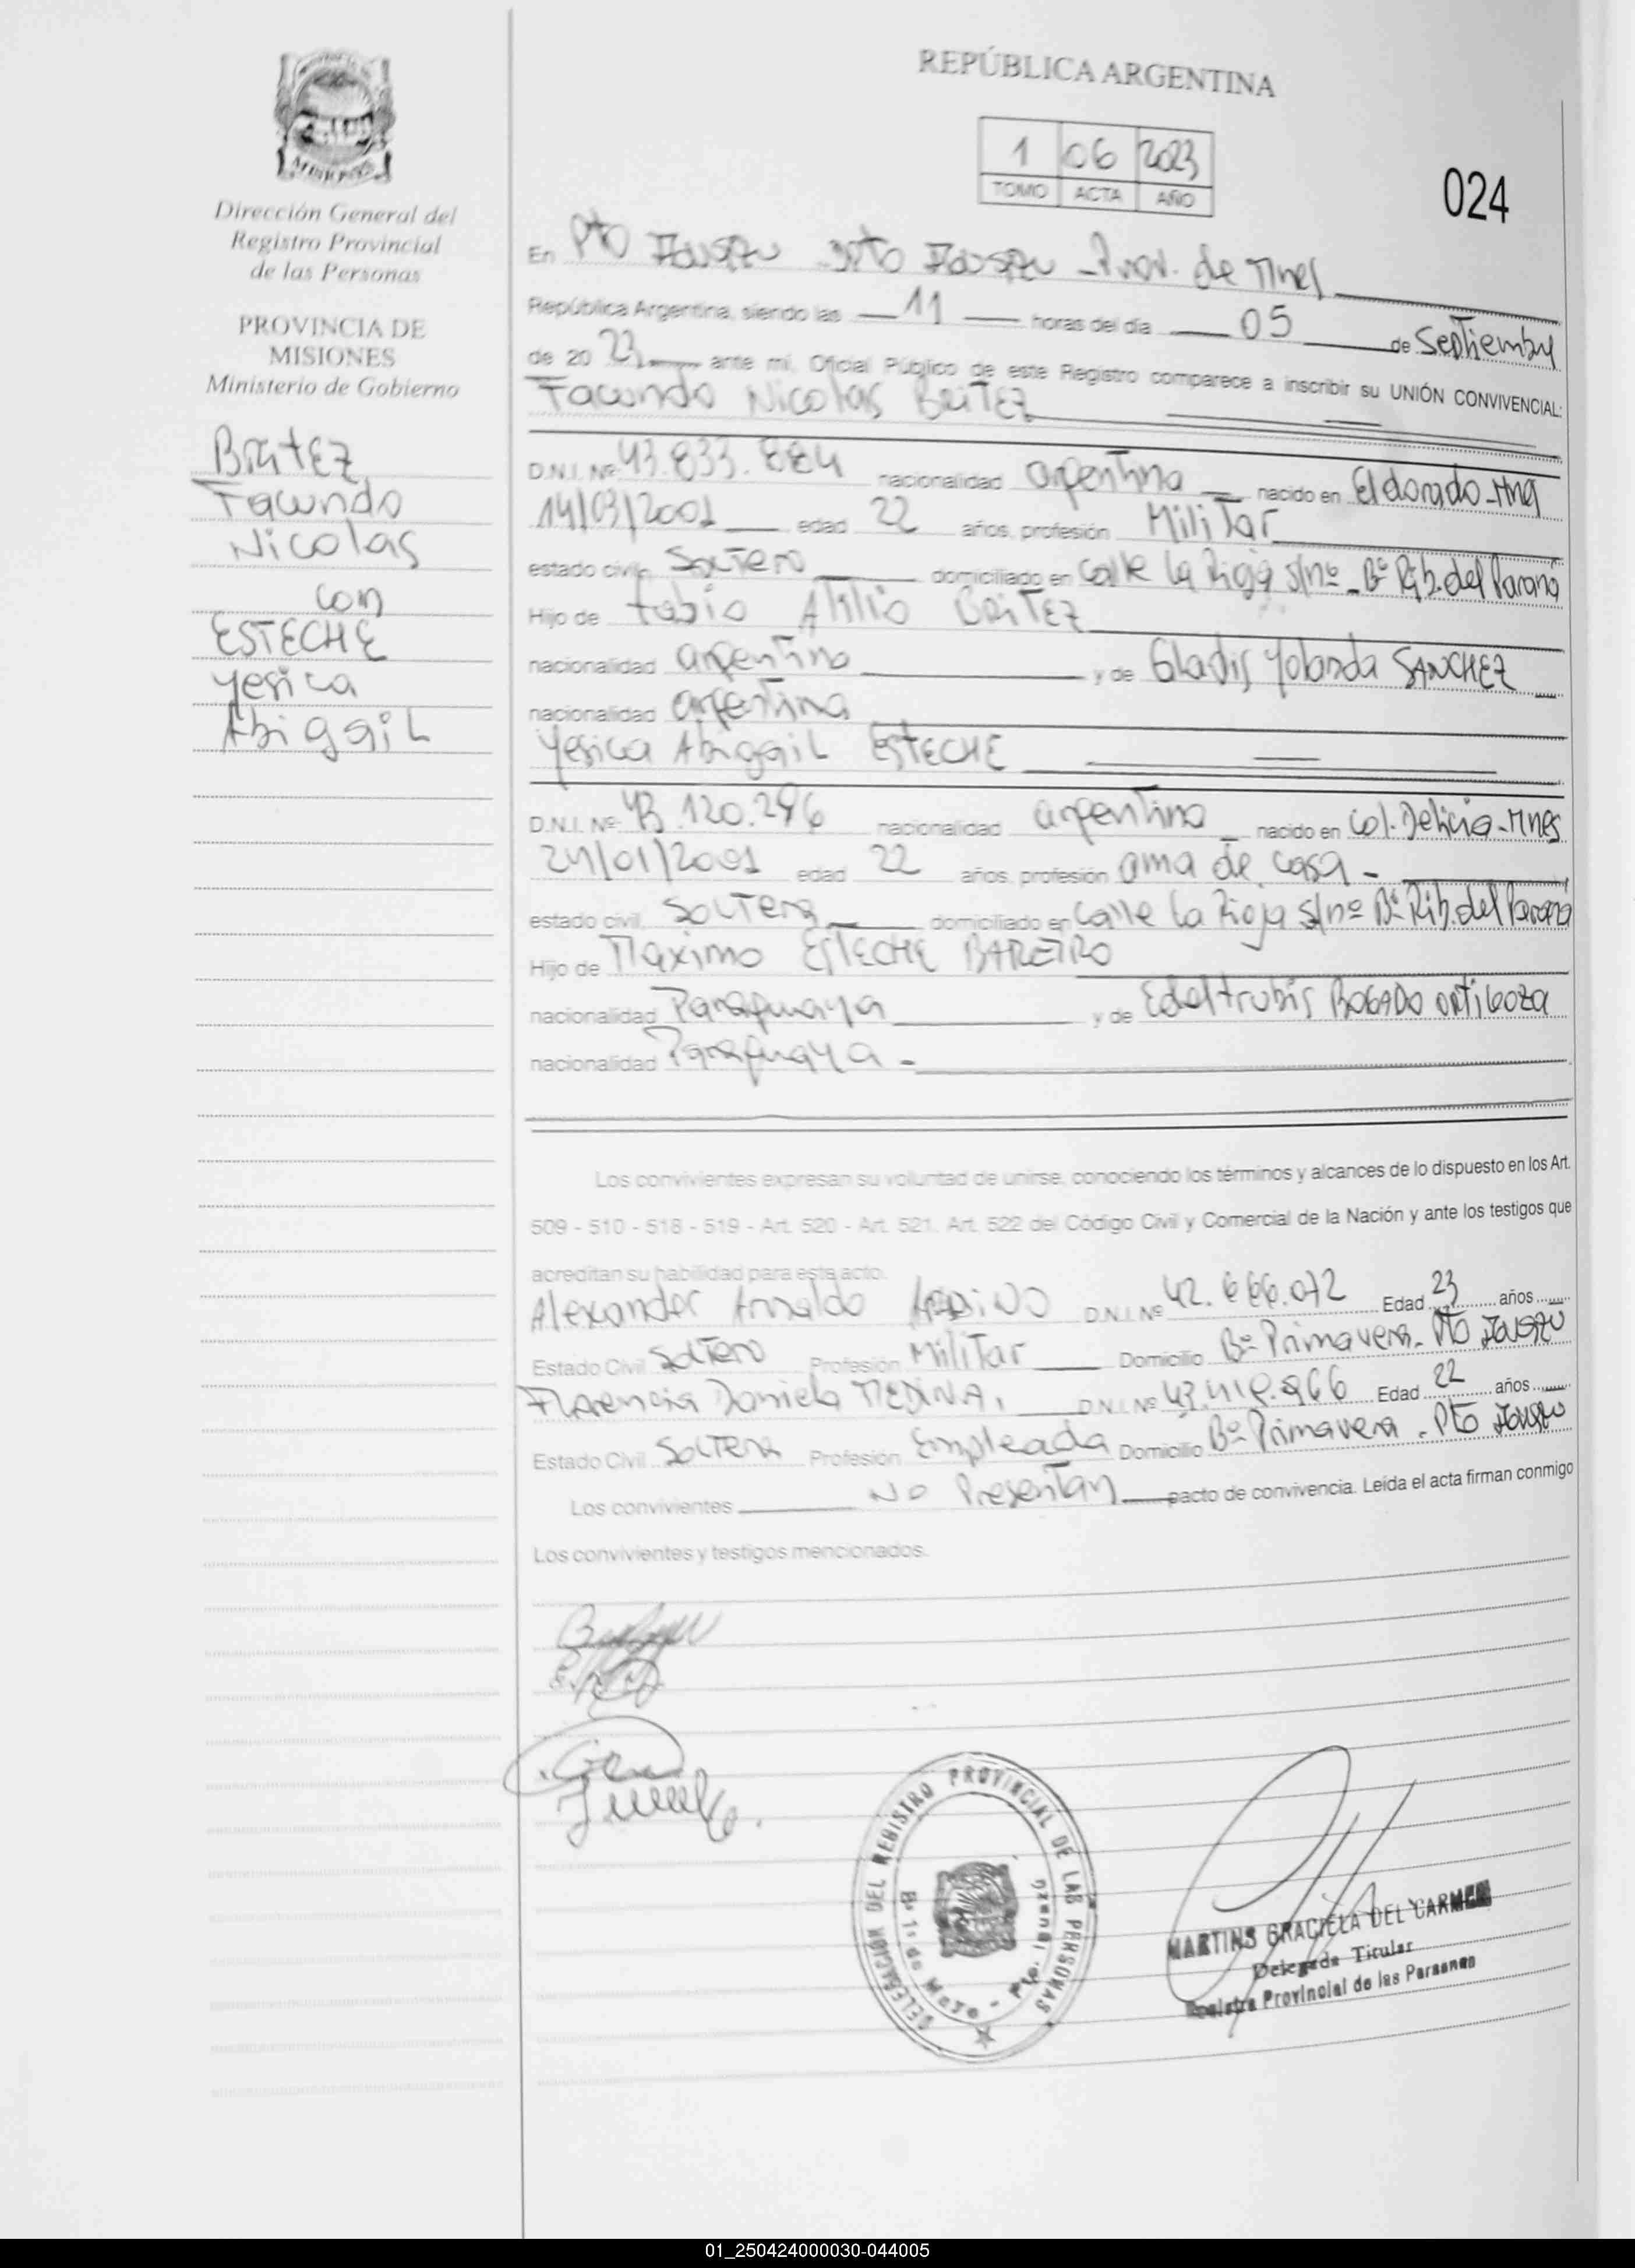 REPÚBLICA ARGENTINA
1 06 2023
TOMO ACTA AÑO
024
Dirección General del
Registro Provincial
de las Personas
PROVINCIA DE
MISIONES
Ministerio de Gobierno
BRITEZ
Facundo
Nicolas
con
ESTECHE
Yesica
Abigail
En Pto Iguazu Dpto Iguazu - Prov. de Mnes
República Argentina, siendo las 11 horas del día 05 de Septiembre
de 20 23 ante mí, Oficial Público de este Registro comparece a inscribir su UNIÓN CONVIVENCIAL:
Facundo Nicolas BRITEZ
D.N.I. Nº 43.833.884 nacionalidad argentina nacido en Eldorado-Mnes
14/03/2001 edad 22 años, profesión Militar
estado civil Soltero domiciliado en calle la Rioja s/nº - Bº Rib. del Parana
Hijo de Fabio Atilio BRITEZ
nacionalidad argentina y de Gladis Yolanda SANCHEZ
nacionalidad argentina
Yesica Abigail ESTECHE
D.N.I. Nº 43.120.296 nacionalidad argentina nacido en Col. Delicia-Mnes
24/01/2001 edad 22 años, profesión ama de casa -
estado civil, Soltera domiciliado en calle La Rioja s/nº Bº Rib. del Parana
Hijo de Maximo ESTECHE BAREIRO
nacionalidad Paraguaya y de Edeltrubis BOGADO ORTIGOZA
nacionalidad Paraguaya -
Los convivientes expresan su voluntad de unirse, conociendo los términos y alcances de lo dispuesto en los Art.
509 - 510 - 518 - 519 - Art. 520 - Art. 521, Art. 522 del Código Civil y Comercial de la Nación y ante los testigos que
acreditan su habilidad para este acto.
Alexander Arnaldo D.N.I. Nº 42.666.072 Edad 23 años
Estado Civil Soltero Profesión Militar Domicilio Bº Primavera - Pto Iguazu
Florencia Daniela MEDINA, D.N.I. Nº Edad 22 años
Estado Civil Soltera Profesión Empleada Domicilio Bº Primavera - Pto Iguazu
Los convivientes No Presentan pacto de convivencia. Leída el acta firman conmigo
Los convivientes y testigos mencionados.
DELEGACIÓN DEL REGISTRO PROVINCIAL DE LAS PERSONAS
Bº 1º de Mayo - Pto. Iguazú
MARTINS GRACIELA DEL CARMEN
Delegada Titular
Registro Provincial de las Personas
01_250424000030-044005